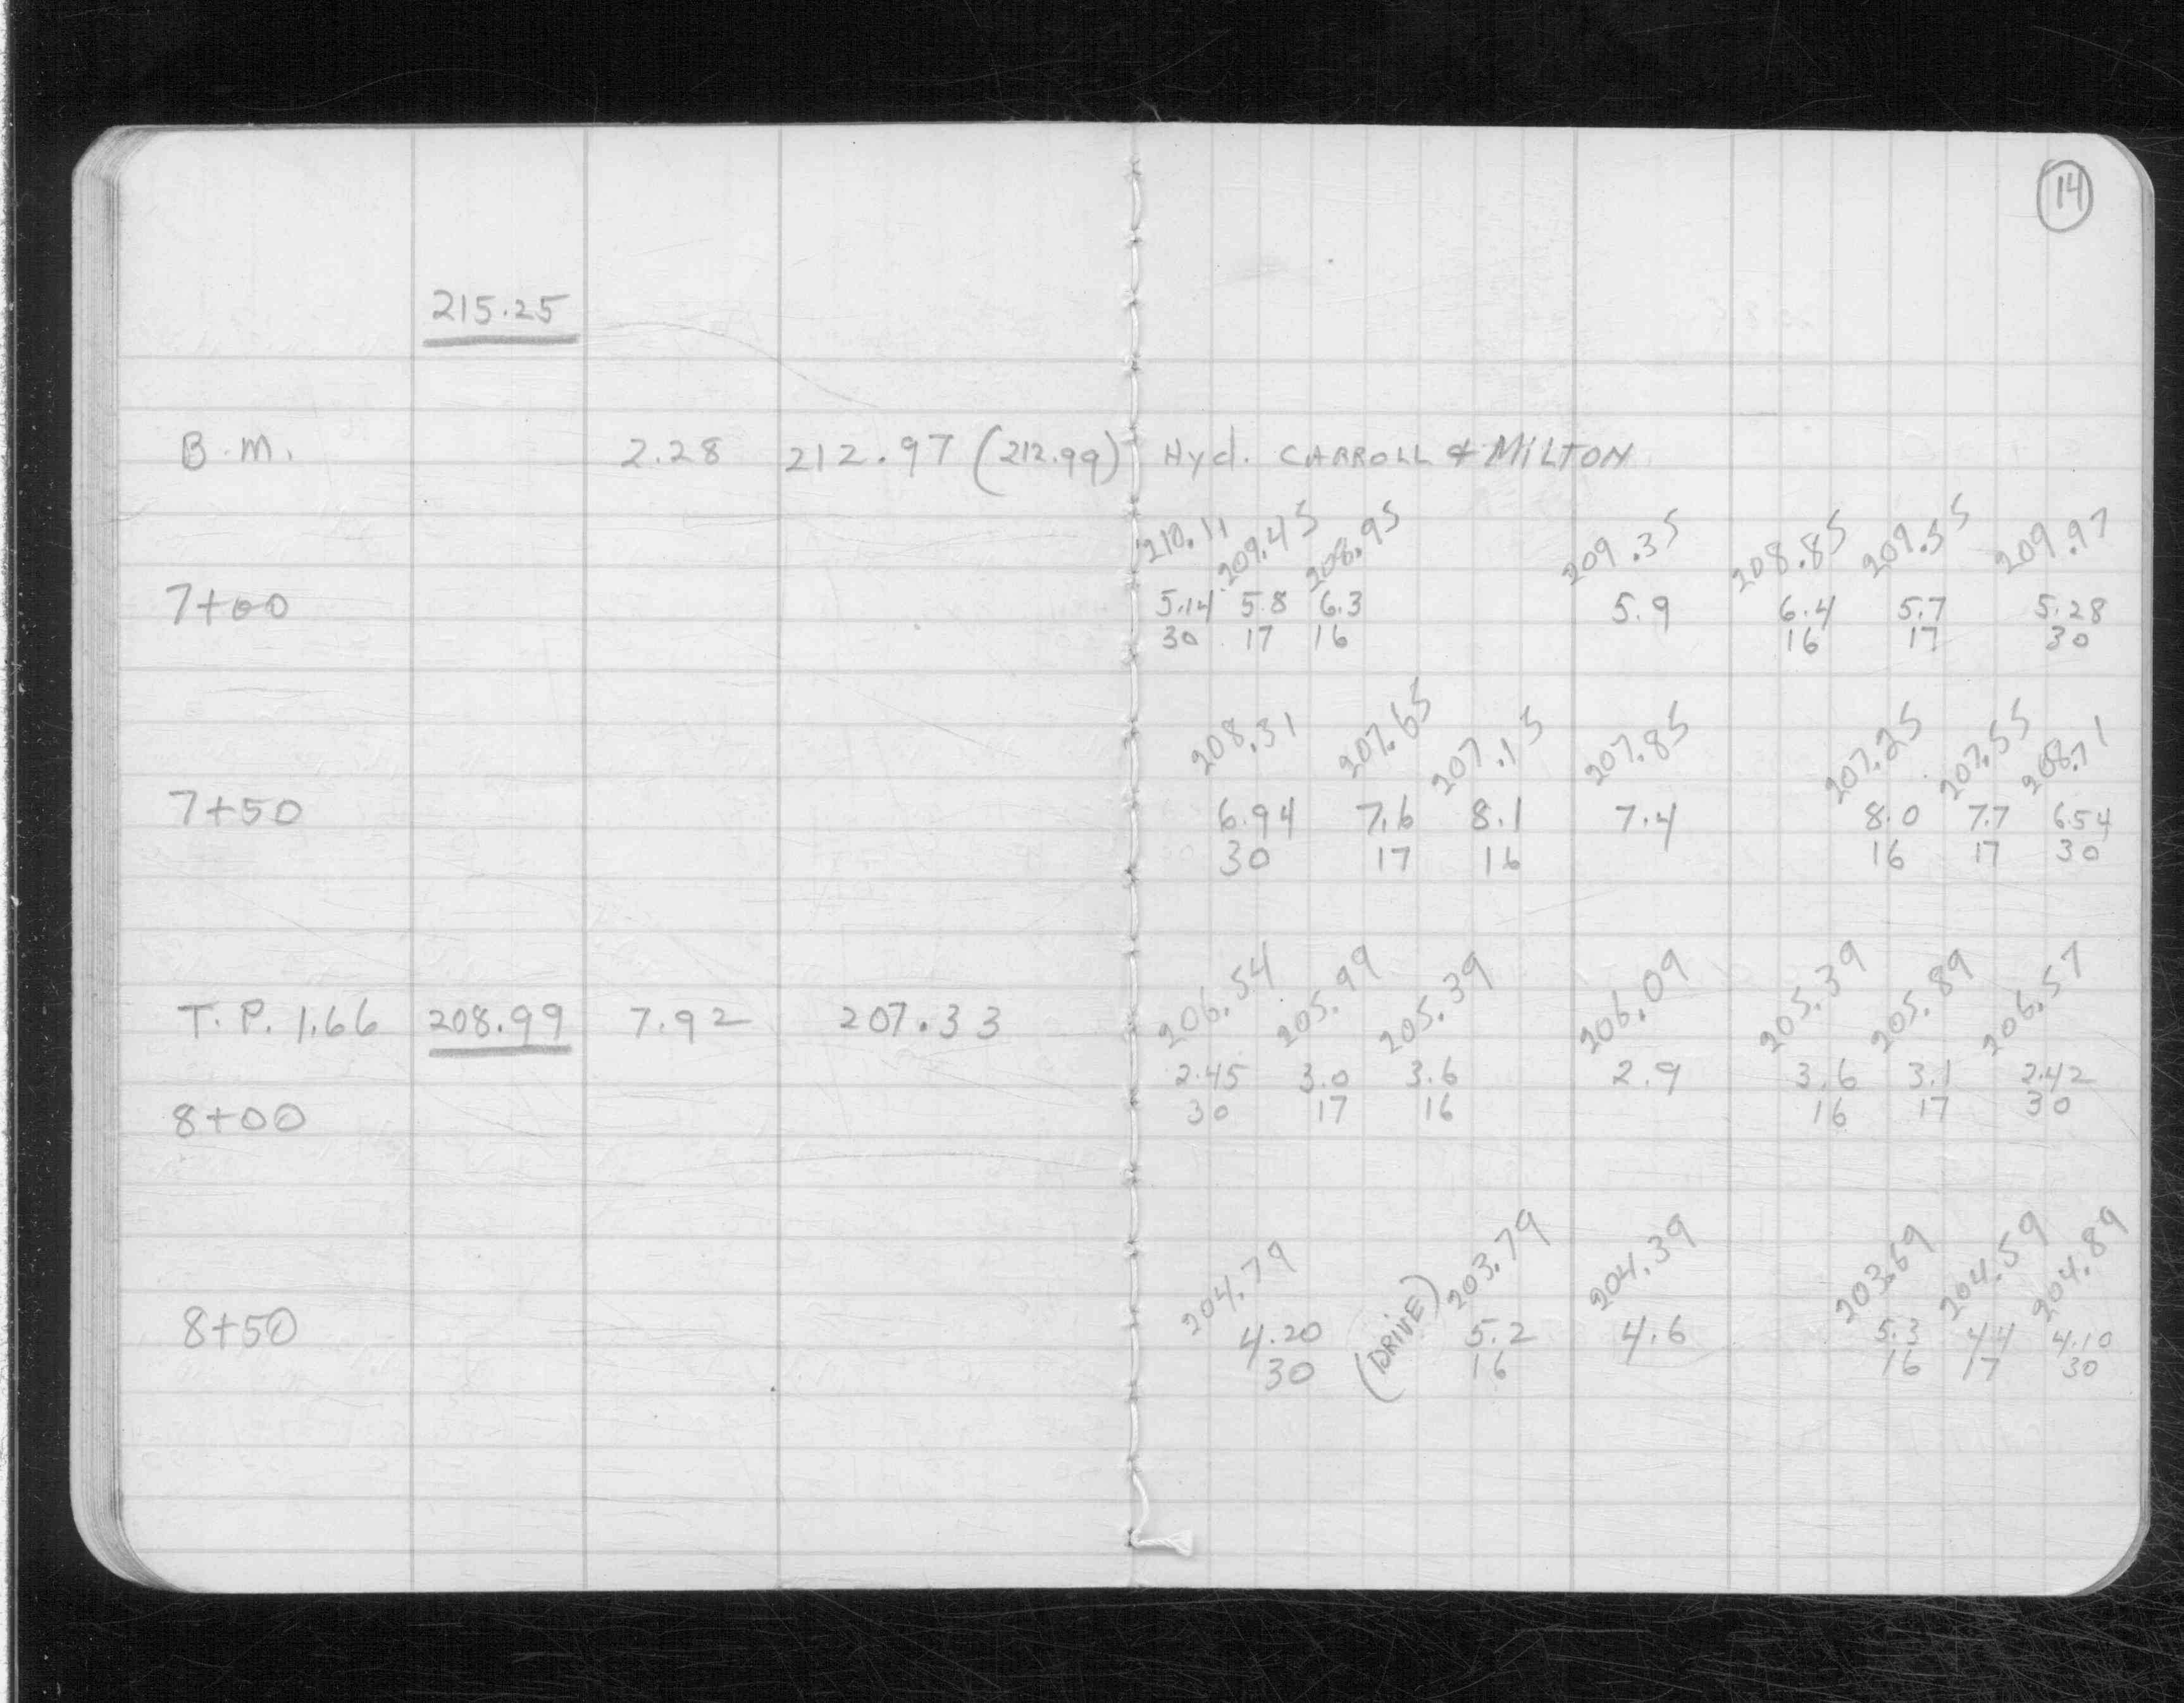 14
215.25
B.M. 2.28 212.97 (212.99) Hyd. CARROLL & MILTON
210.11 209.45 208.95 209.35 208.85 209.55 209.97
7+00 5.14 5.8 6.3 5.9 6.4 5.7 5.28
30 17 16 16 17 30
208.31 207.65 207.15 207.85 207.25 207.55 208.71
7+50 6.94 7.6 8.1 7.4 8.0 7.7 6.54
30 17 16 16 17 30
206.54 205.99 205.39 206.09 205.39 205.89 206.57
T.P. 1.66 208.99 7.92 207.33
2.45 3.0 3.6 2.9 3.6 3.1 2.42
8+00 30 17 16 16 17 30
204.79 203.79 204.39 203.69 204.59 204.89
8+50 4.20 (DRIVE) 5.2 4.6 5.3 4.4 4.10
30 16 16 17 30